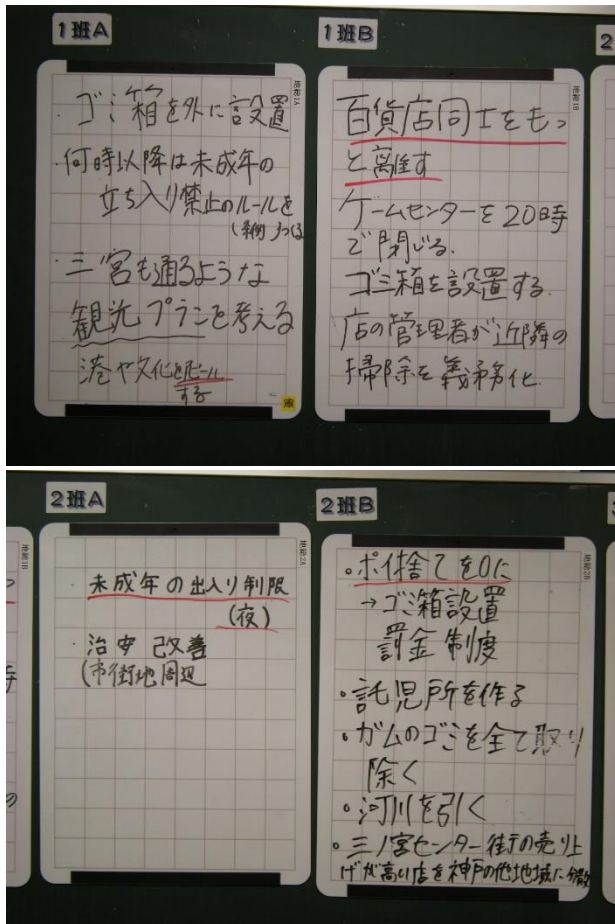 1班A
地総1A
・ゴミ箱を外に設置
・何時以降は未成年の
立ち入り禁止のルールを
(条例)つくる
・三宮も通るような
観光プランを考える
港や文化をアピール
する
1班B
地総1B
百貨店同士をもっ
と離す
ゲームセンターを20時
で閉じる.
ゴミ箱を設置する.
店の管理者が近隣の
掃除を義務化
2
2班A
地総1B
地総2A
未成年の出入り制限
(夜)
・治安改善
(市街地周辺
2班B
地総2B
・ポイ捨てを0に
→ゴミ箱設置
罰金制度
・託児所を作る
・ガムのゴミを全て取り
除く
・河川を引く
・三ノ宮センター街の売り上
げが高い店を神戸の他地域に分散